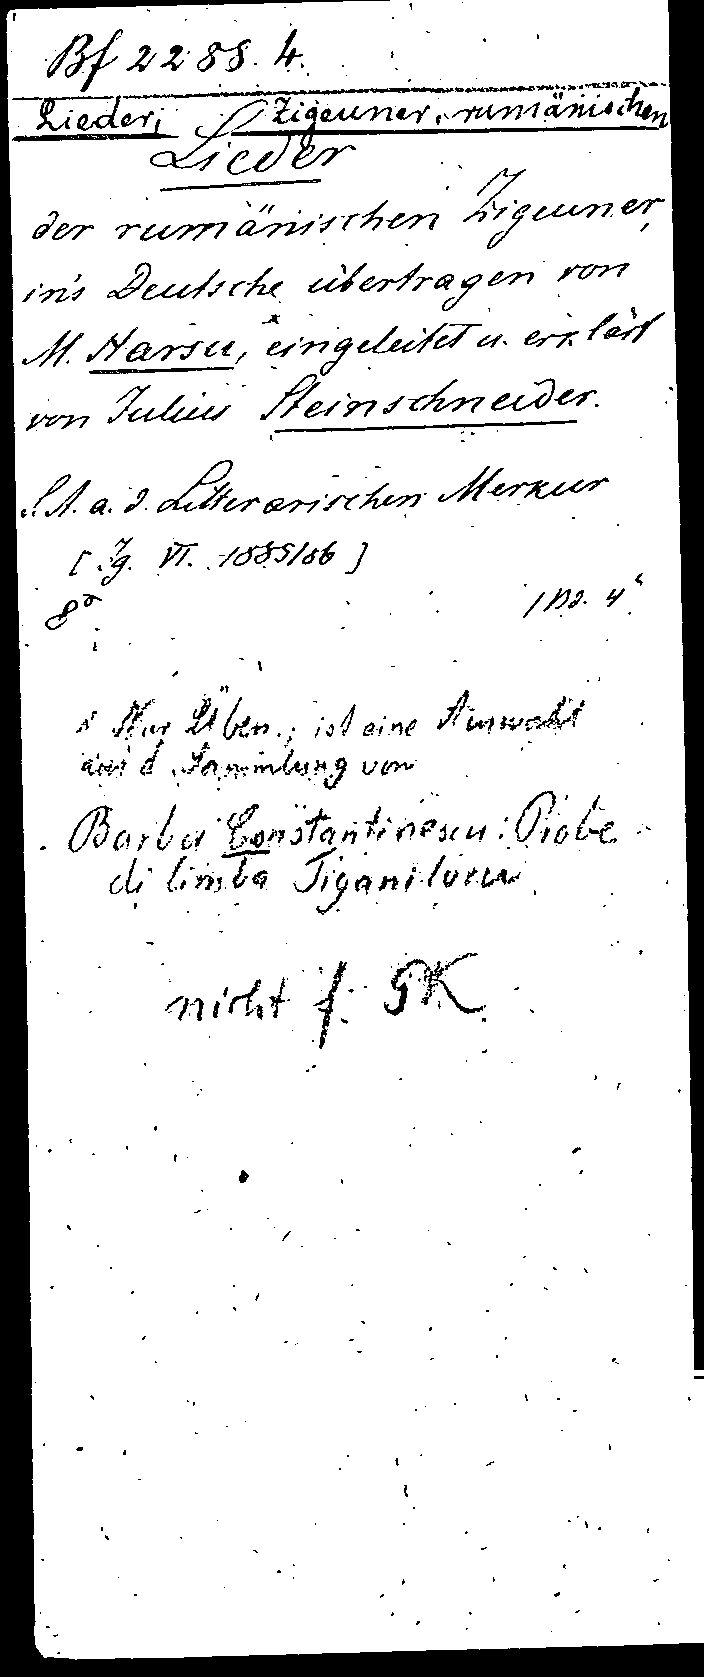 Bf 2288. 4.
Lieder, Zigeuner, rumänischen
Lieder
der rumänischen Zigeuner,
in's Deutsche übertragen von
M. Harsu, eingeleitet u. erklärt
von Julius Steinschneider.
S. A. a. d. Litterarischen Merkur
[Jg. VI. 1885/86]
8° 1 Bd. 4°
Nur Üben., ist eine Auswahl
aus d. Sammlung von
Barbu Constantinescu: Probe
di limba Tiganiloru
nicht f. GK